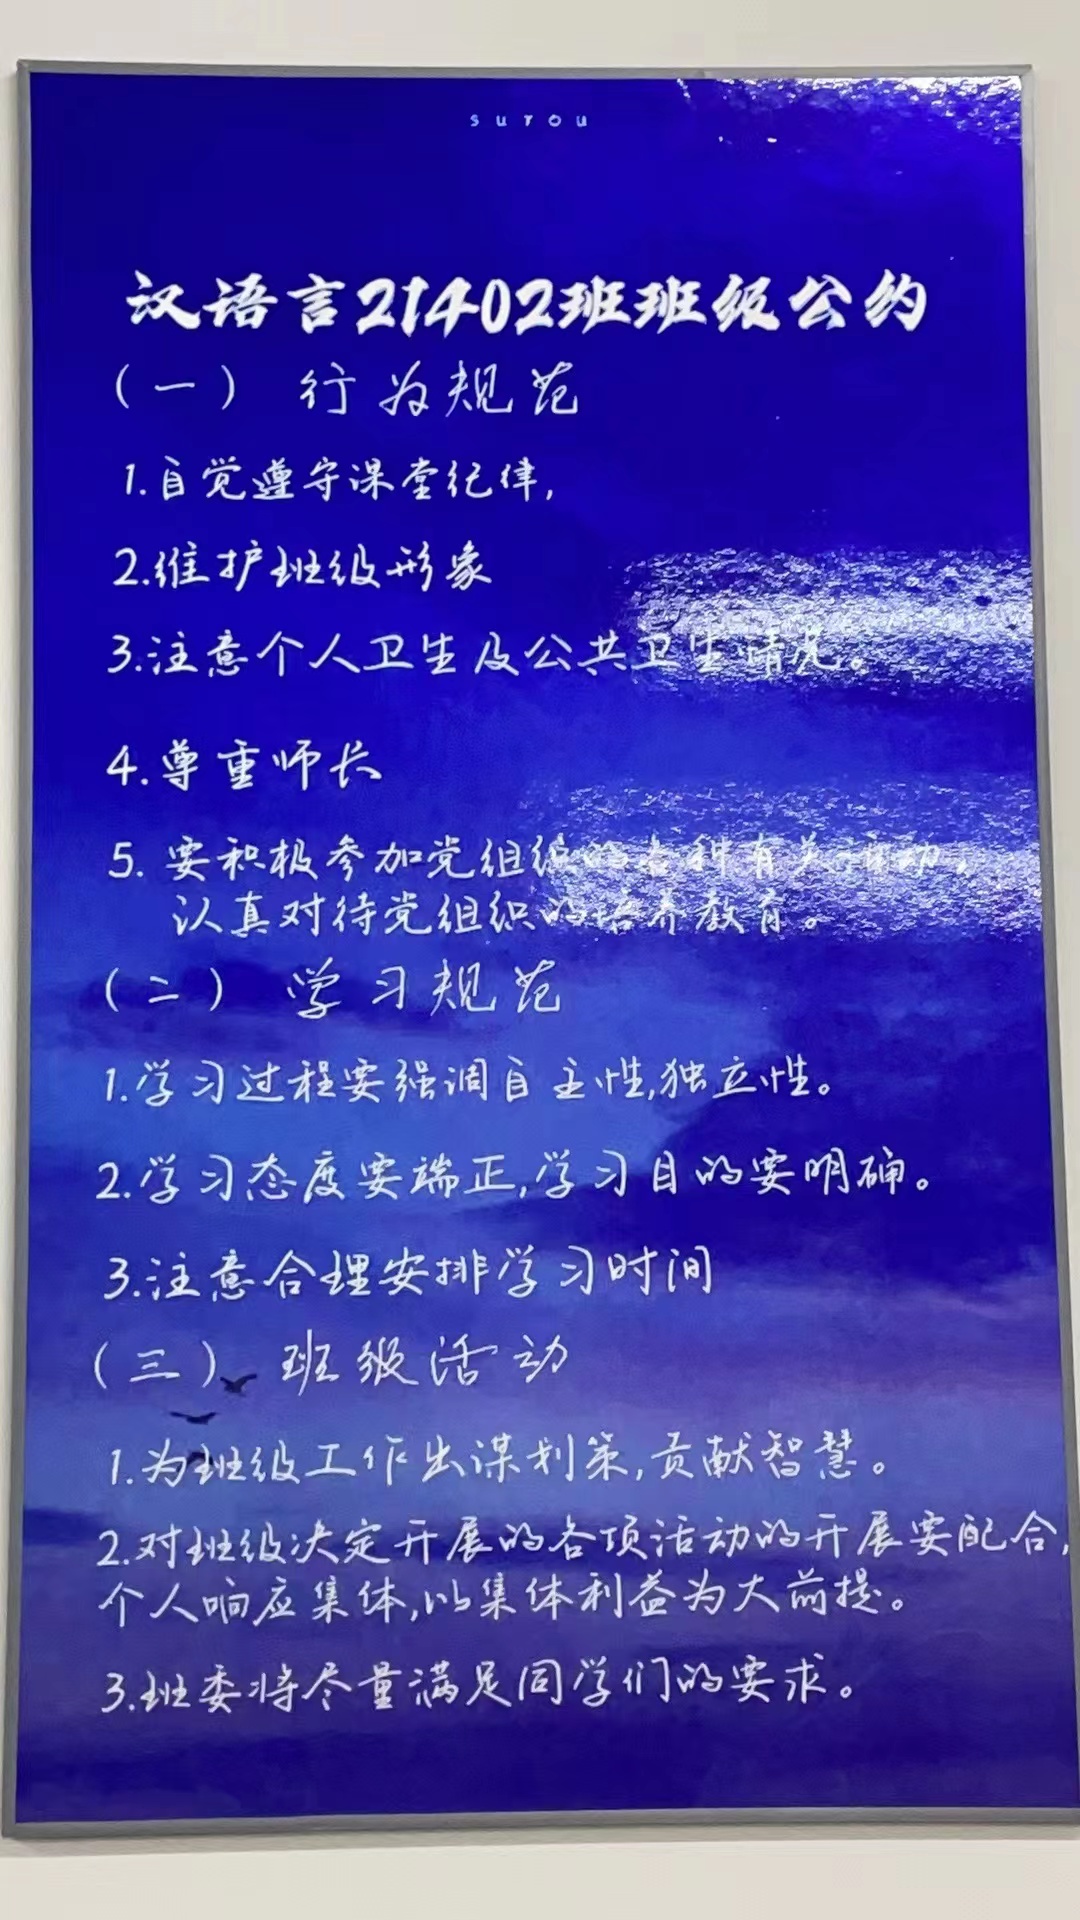 surou
汉语言21402班班级公约
(一) 行为规范
1.自觉遵守课堂纪律,
2.维护班级形象
3.注意个人卫生及公共卫生情况。
4.尊重师长
5.要积极参加党组织的各种有关活动,
认真对待党组织的培养教育。
(二) 学习规范
1.学习过程要强调自主性,独立性。
2.学习态度要端正,学习目的要明确。
3.注意合理安排学习时间
(三) 班级活动
1.为班级工作出谋划策,贡献智慧。
2.对班级决定开展的各项活动的开展要配合,
个人响应集体,以集体利益为大前提。
3.班委将尽量满足同学们的要求。